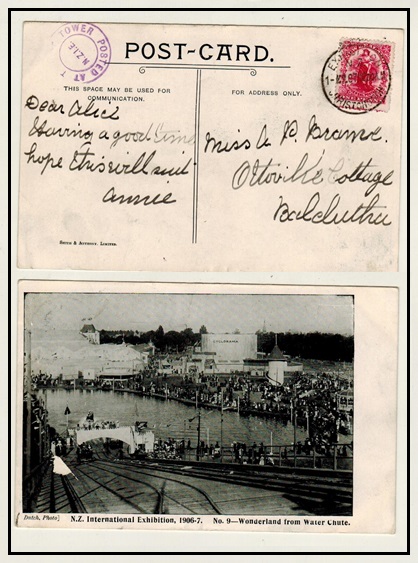 TOWER POSTED AT T
N.Z.I.E
POST-CARD.
THIS SPACE MAY BE USED FOR
COMMUNICATION.
FOR ADDRESS ONLY.
Dear Alice
Having a good time
hope this will suit
Annie
Miss A P.
Cottage
Balclutha
Smith & Anthony, Limited.
Dutch, Photo]
N.Z. International Exhibition, 1906-7. No. 9—Wonderland from Water Chute.